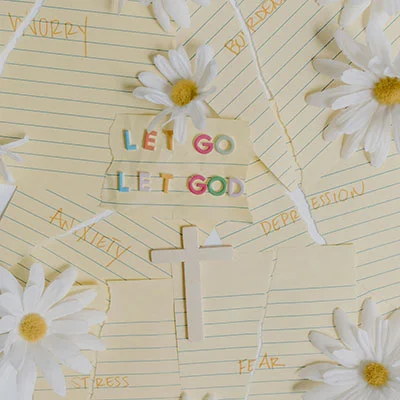 WORRY
BURDEN
LET GO
LET GOD
ANXIETY
DEPRESSION
STRESS
FEAR